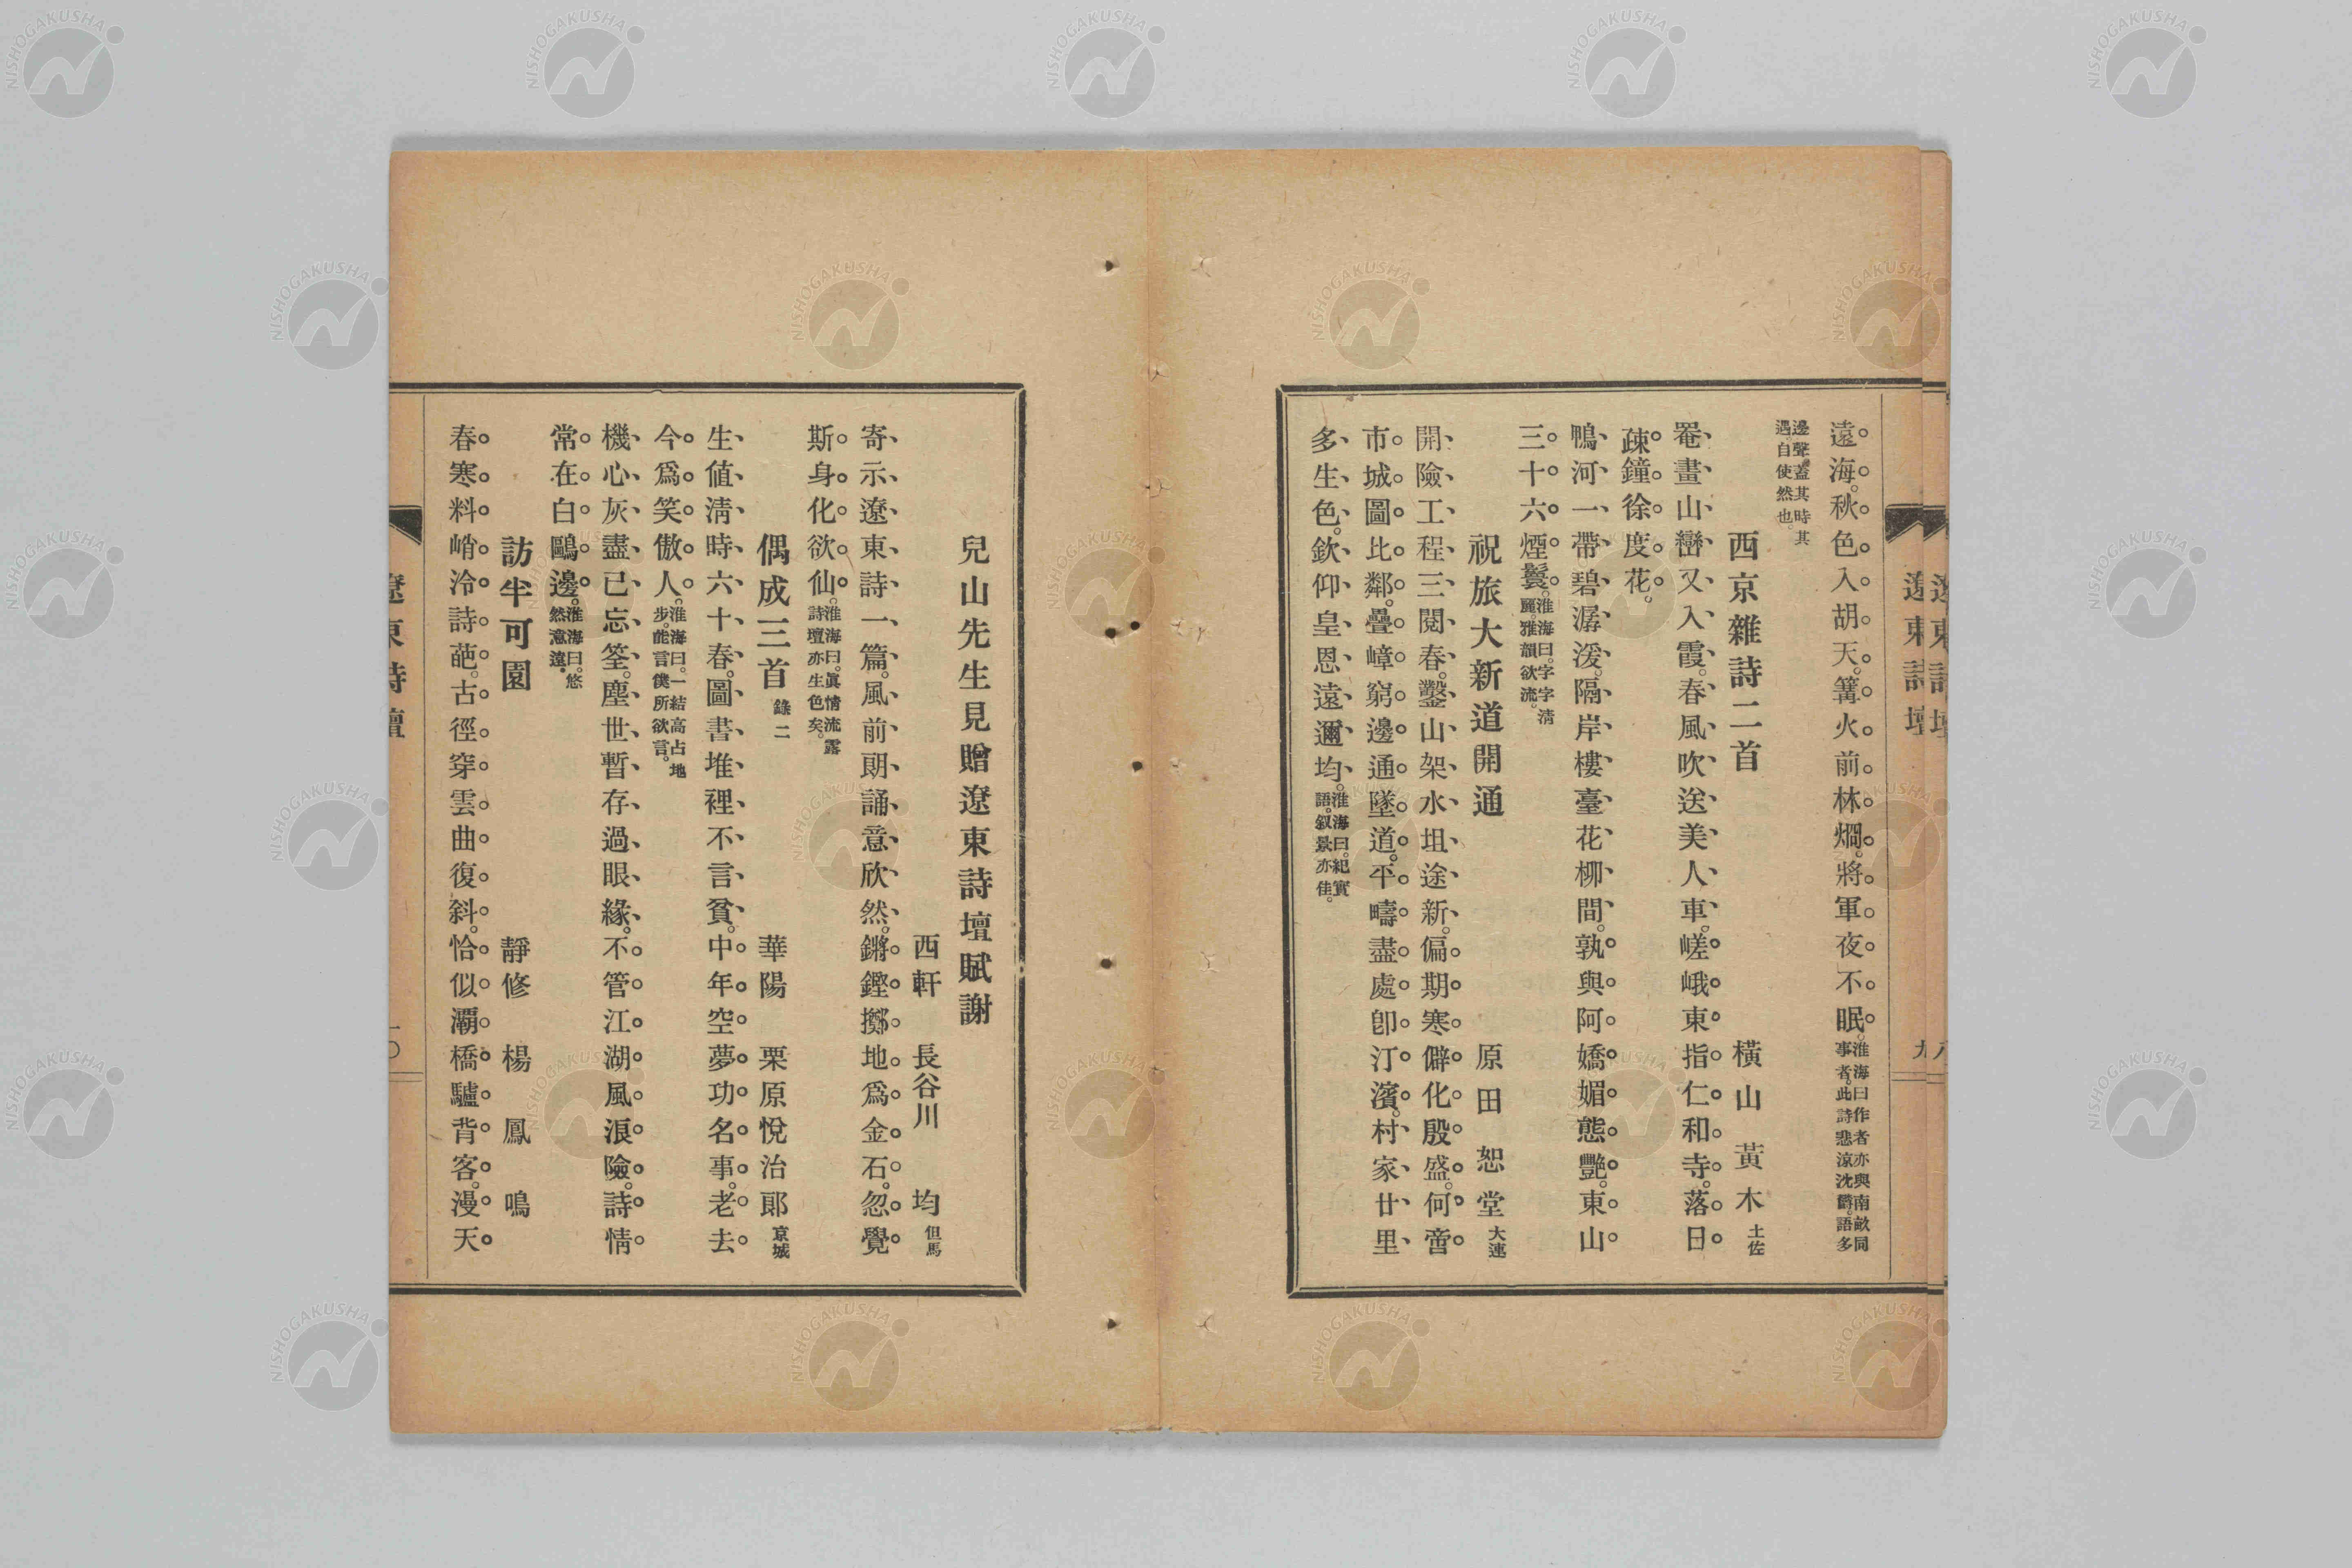 遠海。秋色入胡天。篝火前林燗。將軍夜不眠。淮海曰作者亦與南畝同事者。此詩悲涼沈欝。語多
邊聲。蓋其時其遇。自使然也。
西京雜詩二首 橫山黃木 土佐
罨畫山巒又入霞。春風吹送美人車。嵯峨東指仁和寺。落日
疎鐘徐度花。
鴨河一帶碧潺湲。隔岸樓臺花柳間。孰與阿嬌媚態艷。東山
三十六煙鬟。淮海曰。字字清麗。雅韻欲流。
祝旅大新道開通 原田恕堂 大連
開險工程三閱春。鑿山架水坦途新。偏期寒僻化殷盛。何啻
市城圖比鄰。疊嶂窮邊通墜道。平疇盡處卽汀濱。村家廿里
多生色。欽仰皇恩遠邇均。淮海曰。紀實語。叙景亦佳。
遼東詩壇 九
遼東詩壇 八
兒山先生見贈遼東詩壇賦謝
西軒 長谷川均 但馬
寄示遼東詩一篇。風前朗誦意欣然。鏘鏗擲地爲金石。忽覺
斯身化欲仙。淮海曰。眞情流露詩壇亦生色矣。
偶成三首 錄二 華陽 栗原悅治郞 京城
生值淸時六十春。圖書堆裡不言貧。中年空夢功名事。老去
今爲笑傲人。淮海曰。一結高占地步。能言僕所欲言。
機心灰盡已忘筌。塵世暫存過眼緣。不管江湖風浪險。詩情
常在白鷗邊。淮海曰。悠然意遠。
訪半可園 靜修 楊鳳鳴
春寒料峭冷詩葩。古徑穿雲曲復斜。恰似灞橋驢背客。漫天
遼東詩壇 一〇
NISHOGAKUSHA